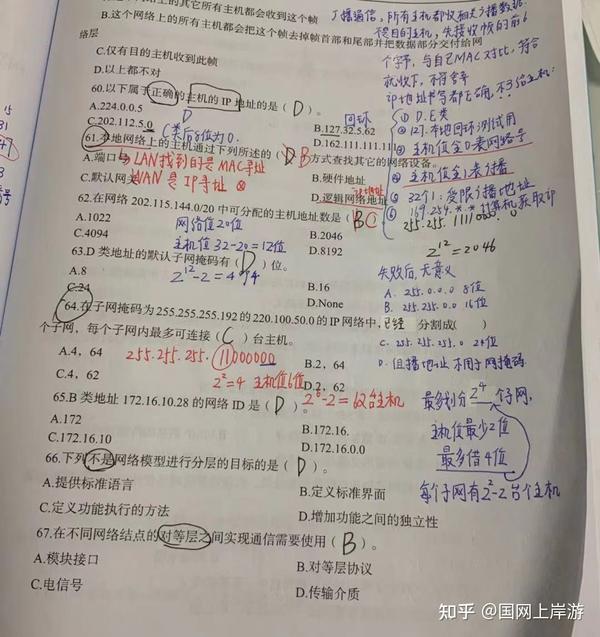 的其它所有主机都会收到这个帧
B.这个网络上的所有主机都会把这个帧去掉帧首部和尾部并把数据部分交付给网
络层
C.仅有目的主机收到此帧
D.以上都不对
60.以下属于正确的主机的 IP 地址的是（ D ）。
A.224.0.0.5
D
B.127.32.5.62
回环
C.202.112.5.0
C类后8位为0.
D.162.111.111.111
61.本地网络上的主机通过下列所述的（ D B 方式查找其它的网络设备。
A.端口
LAN找到的是MAC寻址
B.硬件地址
C.默认网关
WAN是IP寻址
D.逻辑网络地址
62.在网络 202.115.144.0/20 中可分配的主机地址数是（ B C
A.1022
网络值20位
B.2046
C.4094
主机值32-20=12位
D.8192
63.D 类地址的默认子网掩码有（ D ）位。
A.8
2^12-2=4094
B.16
C.24
D.None
64.在子网掩码为 255.255.255.192 的 220.100.50.0 的 IP 网络中，已经 分割成（ ）
个子网，每个子网内最多可连接（ C ）台主机。
A.4，64
255.255.255.11000000
B.2，64
C.4，62
2^2=4 主机值6位
D.2，62
2^6-2=62台主机
65.B 类地址 172.16.10.28 的网络 ID 是（ D ）。
A.172
B.172.16.
C.172.16.10
D.172.16.0.0
66.下列不是网络模型进行分层的目标的是（ D ）。
A.提供标准语言
B.定义标准界面
C.定义功能执行的方法
D.增加功能之间的独立性
67.在不同网络结点的对等层之间实现通信需要使用（ B ）。
A.模块接口
B.对等层协议
C.电信号
D.传输介质
广播通信，所有主机都收到广播数据.
个字节，与自己MAC对比，符合
就收下，不符合弃
① D.E类
② 127.本地回环测试用
③ 主机值全0表网络号
④ 主机值全1表广播
⑤ 32个1：受限广播地址
⑥ 169.254.*.*
255.255.
2^12=2046
失败后，无意义
A. 255.0.0.0 8位
B. 255.255.0.0 16位
C. 255.255.255.0 24位
D. 组播地址不用子网掩码
最多划分2^4个子网,
主机值最少2位
最多借4位
每个子网有2^2-2台个主机
知乎 @国网上岸游